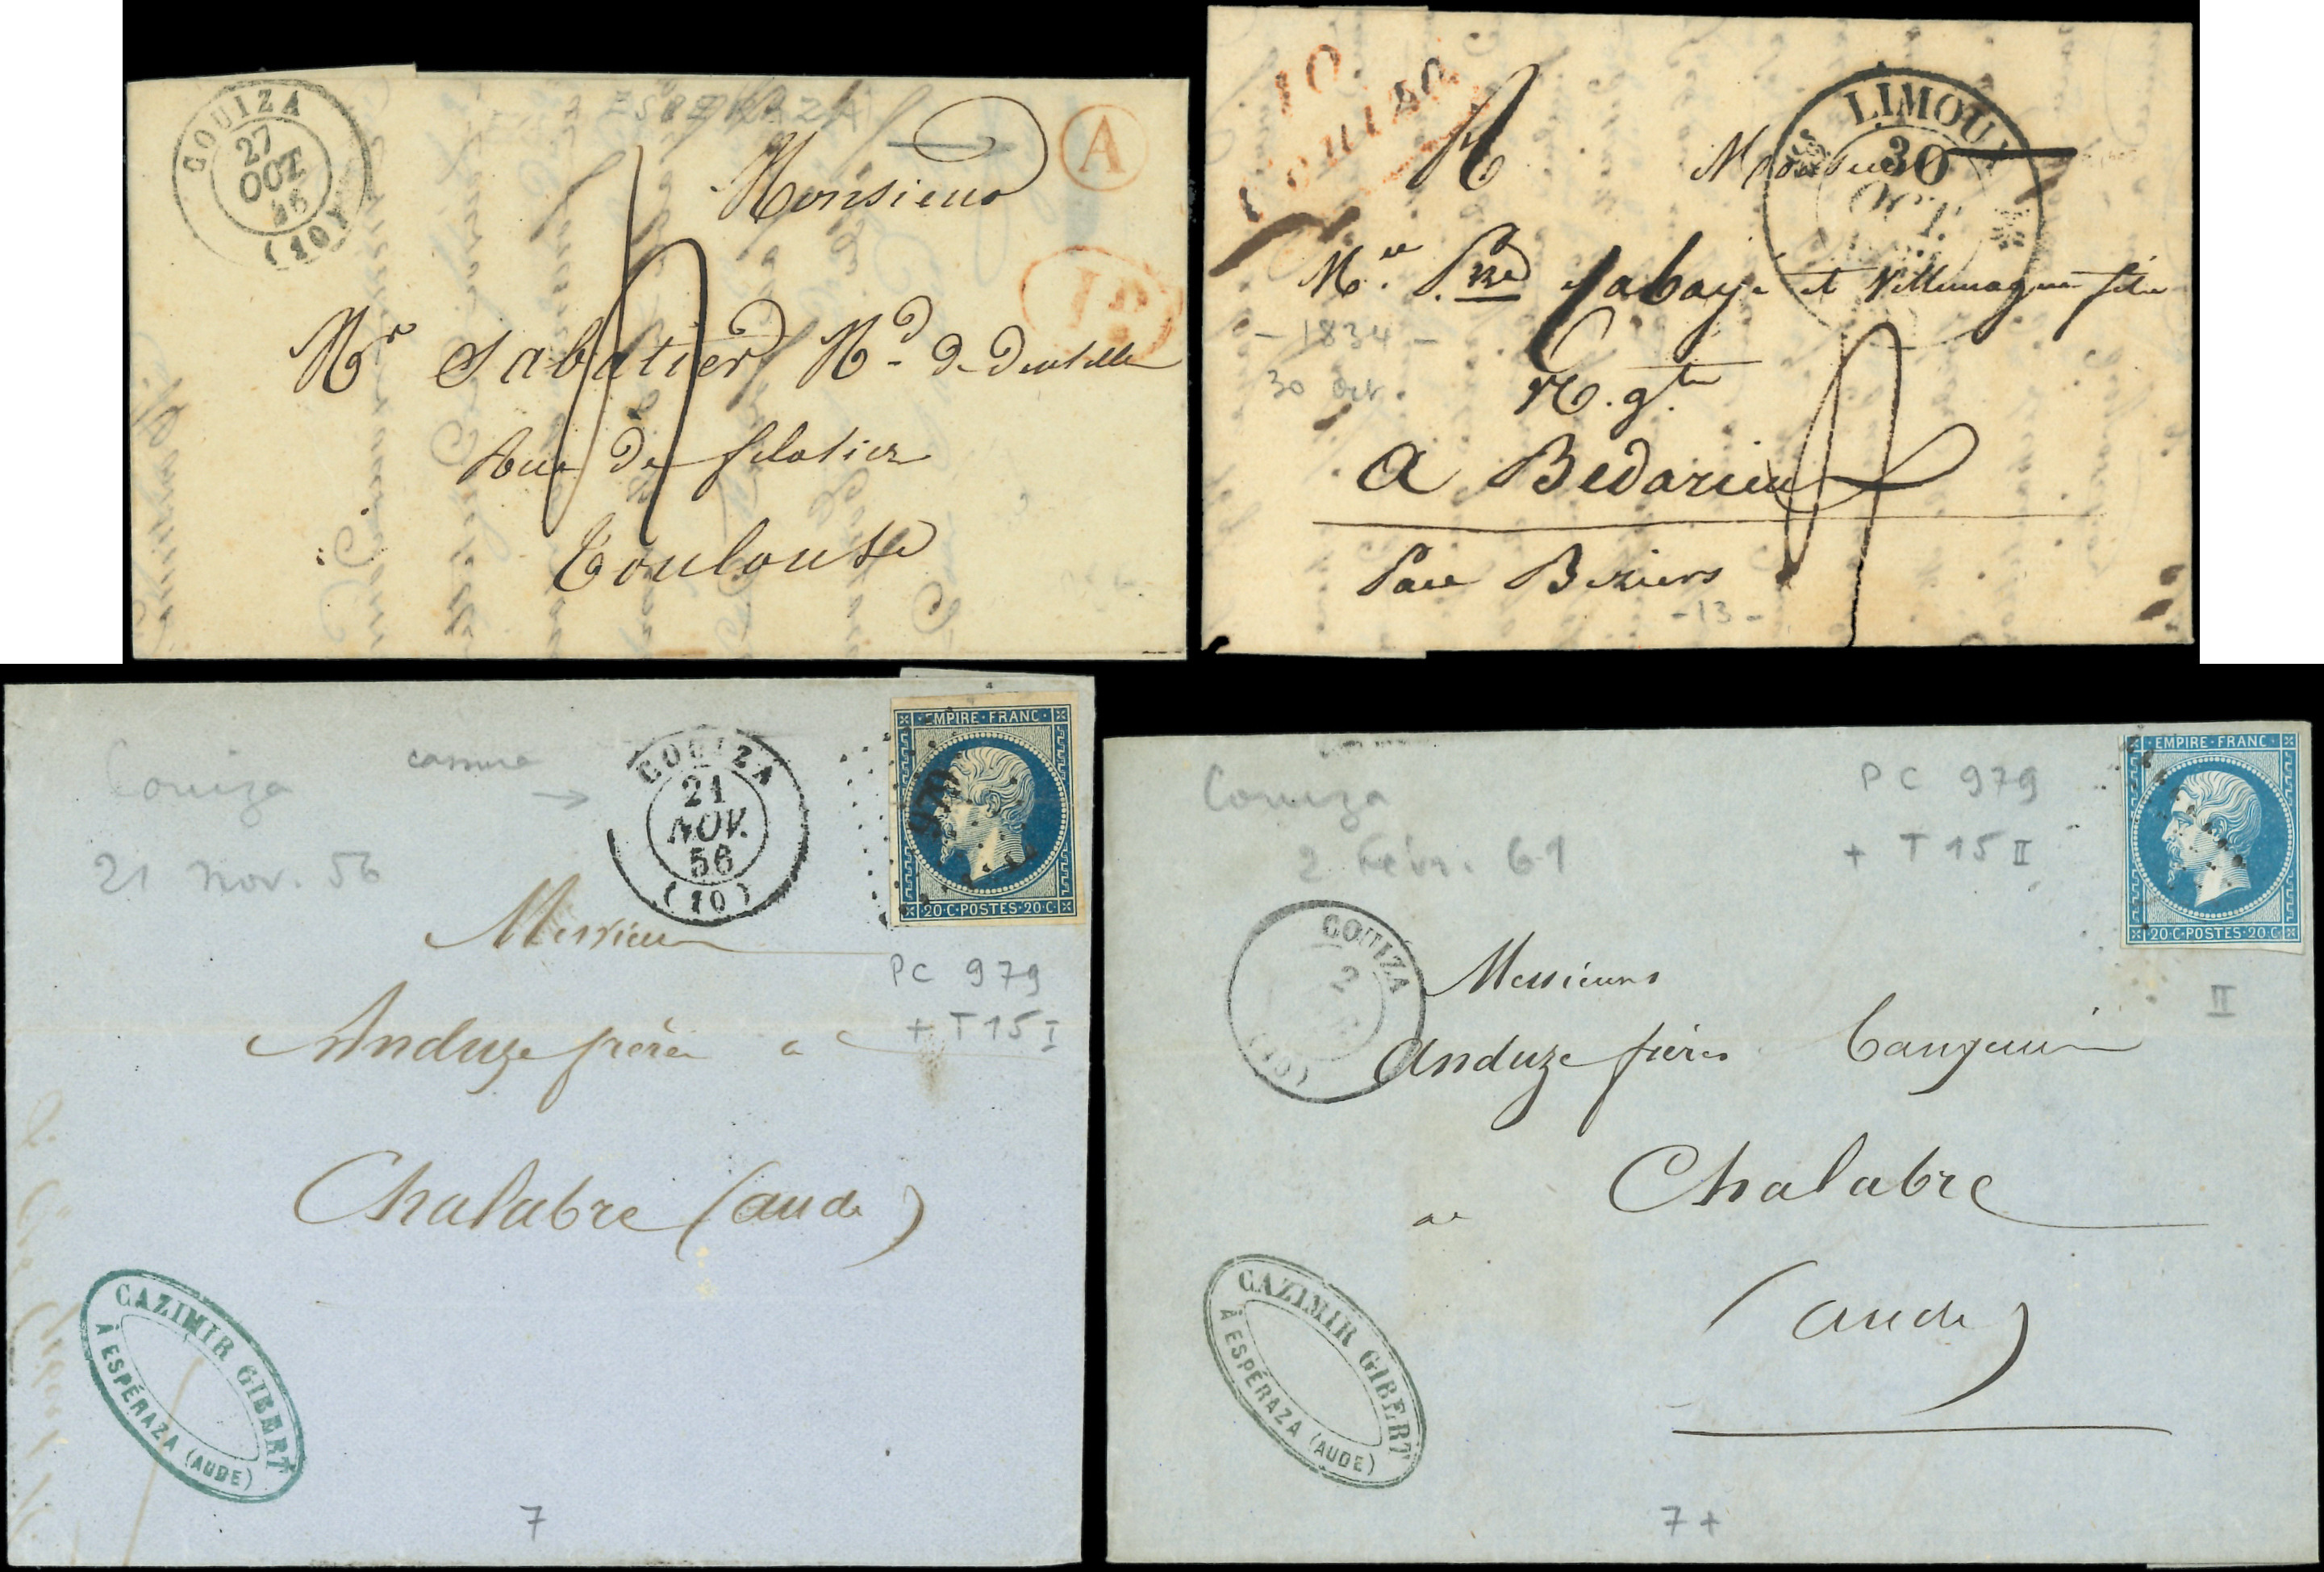 COUIZA
27
OCT
46
(10)
ESPERAZA
A
Monsieur
I.D.
Mr Sabatier Md de Dentelle
Rue de filatier
Toulouse
10
Couiza
LIMOUX
30
OCT.
Monsieur
- 1834 -
30 Oct.
N.gte
a Bedarieux
Par Beziers
- 13 -
Couiza
cassure
→
21 Nov. 56
COUIZA
21
NOV.
56
(10)
EMPIRE · FRANC ·
979
20 · C · POSTES · 20 · C
Messieurs
PC 979
+ T 15 I
Anduze frères a
Chalabre (aude)
CAZIMIR GIBERT
À ESPÉRAZA (AUDE)
7
Couiza
2 Févr. 61
PC 979
+ T 15 II
EMPIRE · FRANC ·
20 · C · POSTES · 20 · C
II
COUIZA
2
(10)
Messieurs
Anduze frères
a Chalabre
(aude)
CAZIMIR GIBERT
À ESPÉRAZA (AUDE)
7 +